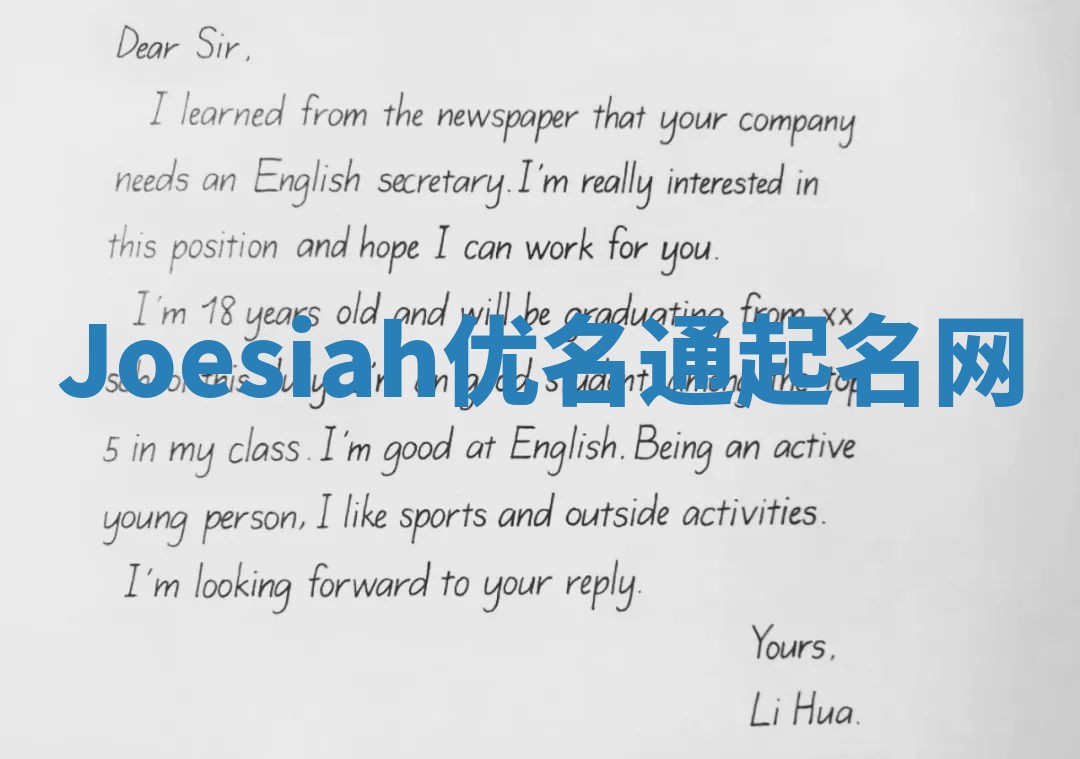 Dear Sir,
I learned from the newspaper that your company
needs an English secretary. I'm really interested in
this position and hope I can work for you.
I'm 18 years old and will be graduating from xx
Joesiah优名通起名网
school this July. I'm an good student among the top
5 in my class. I'm good at English. Being an active
young person, I like sports and outside activities.
I'm looking forward to your reply.
Yours,
Li Hua.